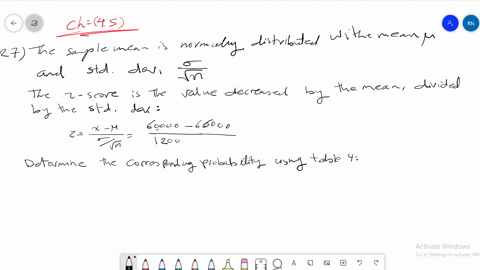 Ch=(4.5)
27) The sample mean is normally distributed with a mean μ
and std. dev. σ/√n
The z-score is the value decreased by the mean, divided
by the std. dev:
z = x-μ / σ/√n = 60000 - 66000 / 1200
Determine the corresponding probability using table 4:
RN
Activate Windows
Go to Settings to activate Windows.